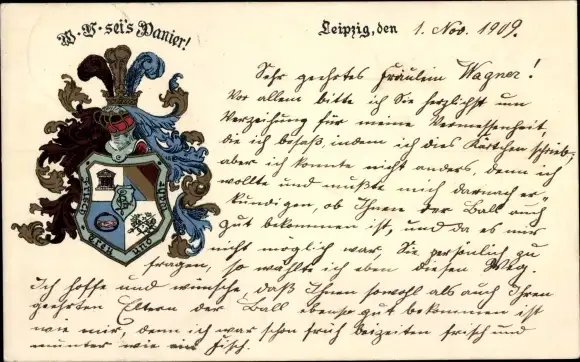 W. H. sei's Panier!
Leipzig, den 1. Nov. 1909.
Sehr geehrtes Fräulein Wagner!
Vor allem bitte ich Sie herzlichst um
Verzeihung für meine Vermessenheit,
die ich besaß, indem ich dies Kärtchen schrieb,
aber ich konnte nicht anders, denn ich
wollte und mußte mich darnach er-
kundigen, ob Ihnen der Ball auch
gut bekommen ist, und da es mir
nicht möglich war, Sie persönlich zu
fragen, so wählte ich eben diesen Weg.
Ich hoffe und wünsche, daß Ihnen sowohl als auch Ihren
geehrten Eltern der Ball ebenso gut bekommen ist
wie mir, denn ich war schon früh beizeiten frisch und
munter wie ein Fisch.
treu und